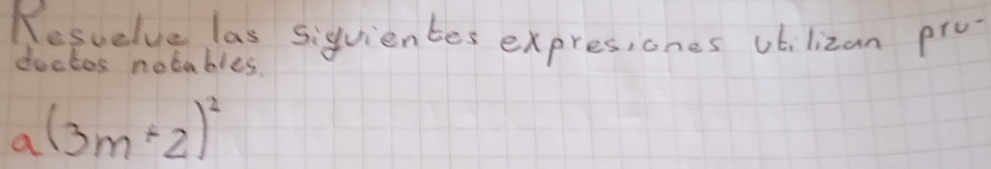 Resuelve las siguientes expresiones utilizan pro-
ductos notables.
a (3m+2)²